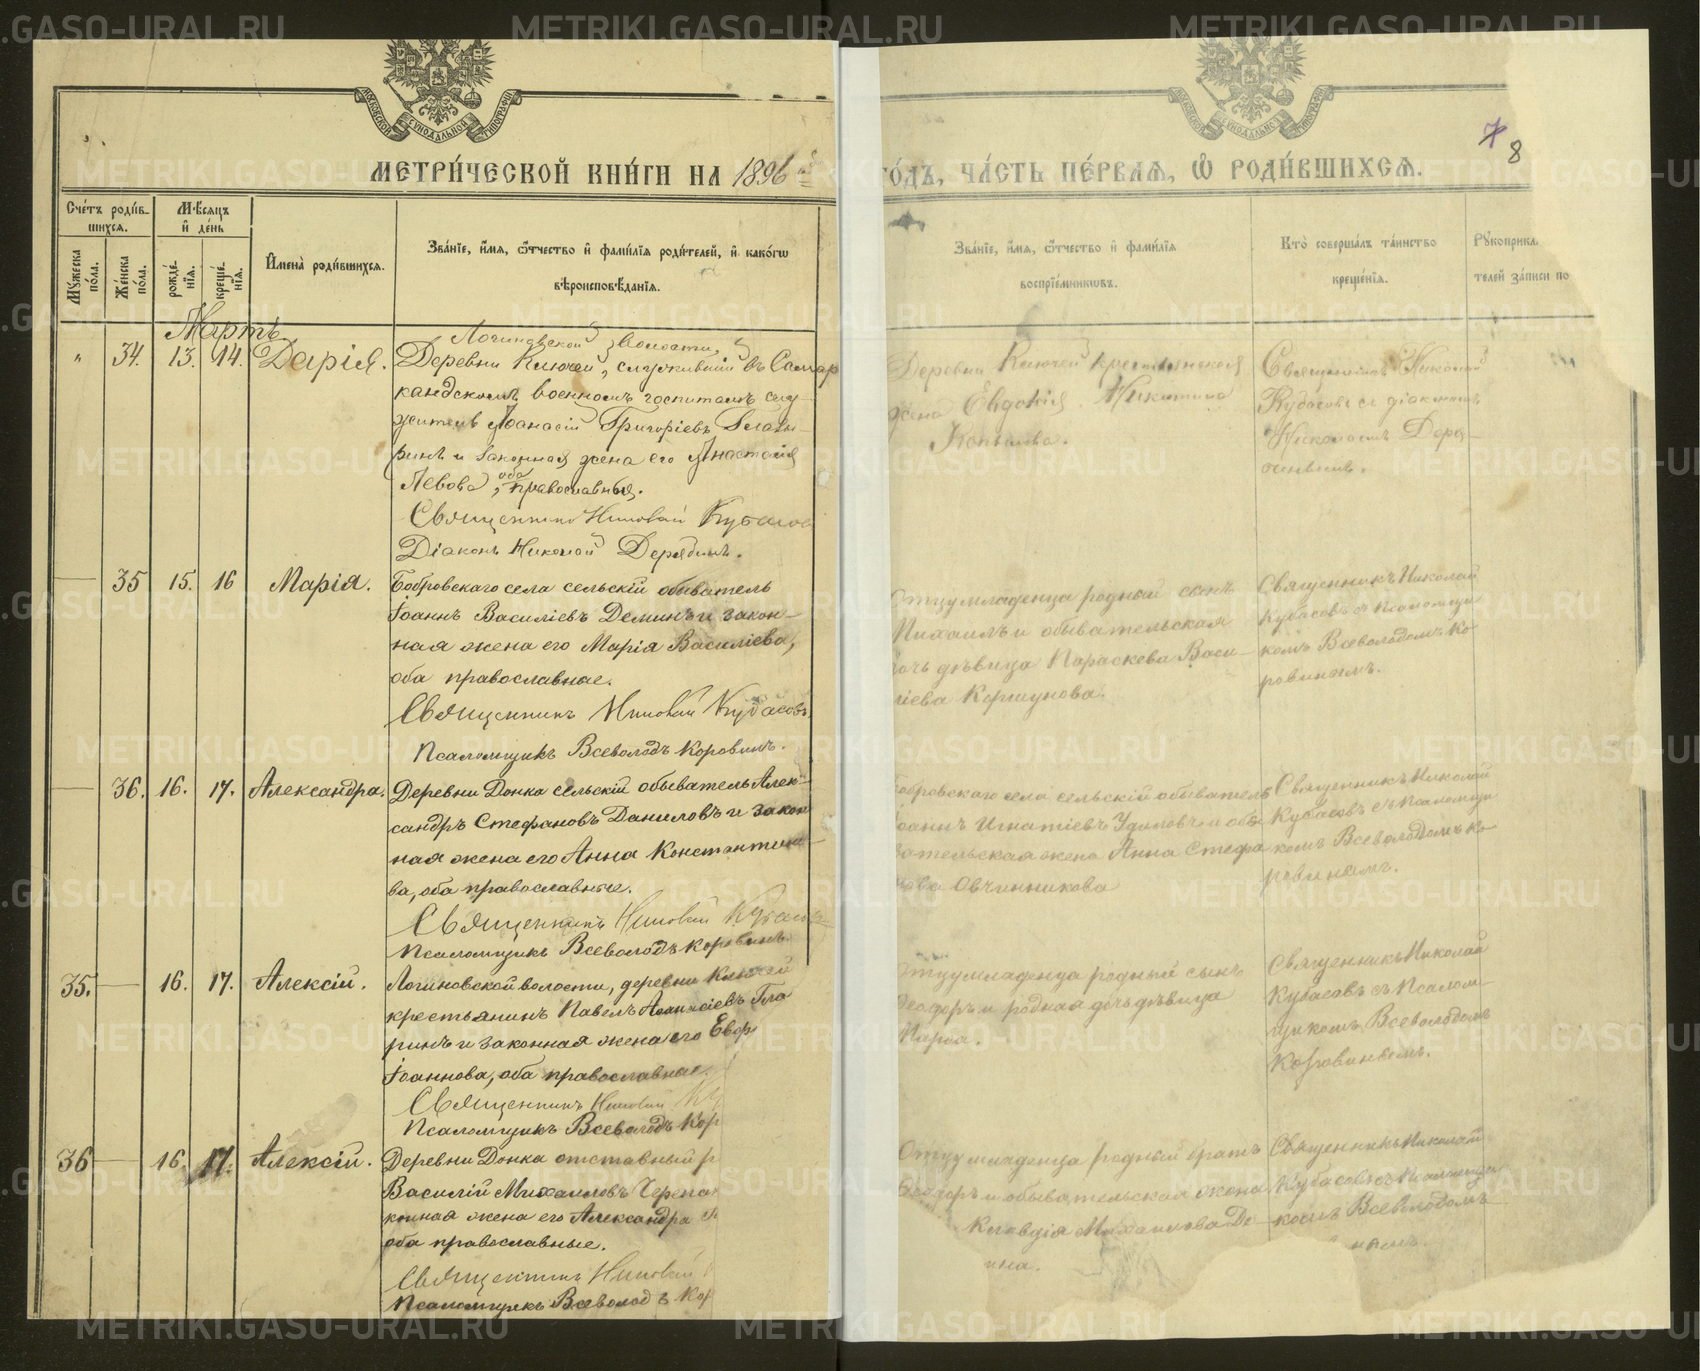 МЕТРИ́ЧЕСКОЙ КНИ́ГИ НА 1896
ГО́ДЪ, ЧА́СТЬ ПЕ́РВАѦ, Ѽ РОДИ́ВШИХСѦ.
7 8
Сче́тъ роди́вшихсѧ.
Мѣ́сѧцъ и҆ де́нь
Мꙋ́жеска по́ла.
Же́нска по́ла.
рожде́нїѧ.
креще́нїѧ.
И҆мена̀ роди́вшихсѧ.
Зва́нїе, и҆́мѧ, ѻ҆́тчество и҆ фами́лїѧ роди́телей, и҆ како́гѡ
вѣроисповѣ́данїѧ.
Зва́нїе, и҆́мѧ, ѻ҆́тчество и҆ фами́лїѧ
воспрїе́мникѡвъ.
Кто̀ соверша́лъ та́инство
креще́нїѧ.
Рꙋкоприкла
телей за́писи по
Мартъ
" 34. 13. 14. Дарія.
Логиновской волости,
Деревни Ключей, служившій въ Самар
кандскомъ военномъ госпиталѣ слу-
житель Аѳанасій Григоріевъ
и законная жена его Анастасія
Левова, оба православныя.
Священникъ Николай Кубасов
Діаконъ Николай Дерябинъ.
Деревни Ключей крестьянская
жена Евдокія Никитина
Копылова.
Священникъ Николай
Кубасовъ съ діакономъ
Николаемъ Деря-
бинымъ.
35 15. 16 Марія.
Бобровскаго села сельскій обыватель
Іоаннъ Василіевъ Деминъ и закон-
ная жена его Марія Василіева,
оба православные.
Священникъ Николай Кубасовъ
Псаломщикъ Всеволодъ Коровинъ.
Отцу младенца родный сынъ
Михаилъ и обывательская
дочь дѣвица Параскева Васи-
ліева Коршунова.
Священникъ Николай
Кубасовъ съ псаломщи
комъ Всеволодомъ Ко
ровинымъ.
36. 16. 17. Александра.
Деревни Донка сельскій обыватель Алек-
сандръ Стефановъ Даниловъ и закон
ная жена его Анна Константино
ва, оба православные.
Священникъ Николай Кубасов
Псаломщикъ Всеволодъ Коровинъ
Бобровскаго села сельскій обыватель
Іоаннъ Игнатіевъ и обы
вательская жена Анна Стефа
нова Овчинникова
Священникъ Николай
Кубасовъ съ псаломщи
комъ Всеволодомъ Ко
ровинымъ.
35. 16. 17. Алексій.
Логиновской волости, деревни Ключей
крестьянинъ Павелъ Аѳанасіевъ Гла
ринъ и законная жена его Евф
Іоаннова, оба православные.
Священникъ Николай Ку
Псаломщикъ Всеволодъ Кор
Отцу младенца родный сынъ
Ѳеодоръ и родная дочь дѣвица
Марѳа.
Священникъ Николай
Кубасовъ съ Псалом-
щикомъ Всеволодомъ
Коровинымъ.
36 16. 17. Алексій.
Деревни Донка отставный р
Василій Михаиловъ Черепа
конная жена его Александра
оба православные.
Священникъ Николай
Псаломщикъ Всеволодъ Кор
Отцу младенца родный братъ
Ѳеодоръ и обывательская жена
Клавдія Михаилова Де
ина.
Священникъ Николай
Кубасовъ съ Псаломщи
комъ Всеволодомъ
нымъ
METRIKI.GASO-URAL.RU